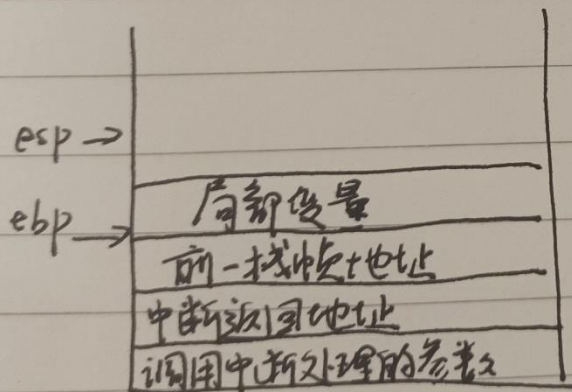 esp →
局部变量
ebp →
前一栈帧地址
中断返回地址
调用中断处理的参数